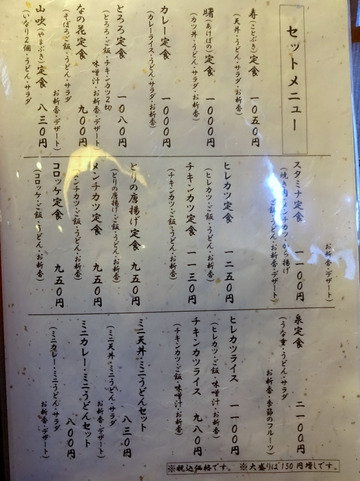 セットメニュー
寿（ことぶき）定食 一〇五〇円
（天丼・うどん・サラダ・お新香）
曙（あけぼの）定食 一〇〇〇円
（カツ丼・うどん・サラダ・お新香）
カレー定食 一〇〇〇円
（カレーライス・うどん・サラダ・お新香）
とろろ定食 一〇八〇円
（とろろ・ご飯・チキンカツ2切
味噌汁・お新香・デザート）
なの花定食 九〇〇円
（そぼろご飯・うどん・サラダ
お新香・デザート）
山吹（やまぶき）定食 八三〇円
（いなり2個・うどん・サラダ
お新香・デザート）
スタミナ定食 一一〇〇円
お新香・デザート）
ヒレカツ定食 一二五〇円
（ヒレカツ・ご飯・うどん・お新香）
チキンカツ定食 一一三〇円
（チキンカツ・ご飯・うどん・お新香）
とりの唐揚げ定食 九五〇円
（とりの唐揚げ・ご飯・うどん・お新香）
メンチカツ定食 九五〇円
コロッケ定食 九五〇円
（コロッケ・ご飯・うどん・お新香）
泉定食 二一〇〇円
（うな重・うどん・サラダ
お新香・季節のフルーツ）
ヒレカツライス 一一〇〇円
（ヒレカツ・ご飯・味噌汁・お新香）
チキンカツライス 九八〇円
（チキンカツ・ご飯・味噌汁・お新香）
ミニ天丼・ミニうどんセット 八三〇円
（ミニ天丼・ミニうどん・サラダ
お新香・デザート）
ミニカレー・ミニうどんセット 八〇〇円
（ミニカレー・ミニうどん・サラダ
お新香・デザート）
※税込価格です。 ※大盛りは150円増しです。